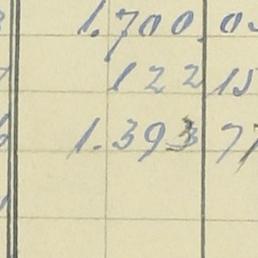 1.700.0
122 15
1.393 77